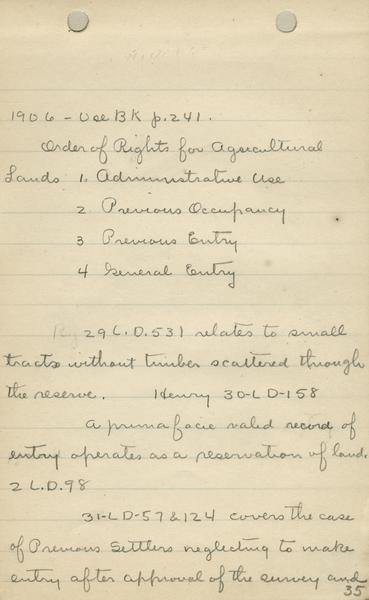 1906 - Use BK p.241.
Order of Rights for Agricultural
Lands 1. Administrative Use
2 Previous Occupancy
3 Previous Entry
4 General Entry
29 L.D.531 relates to small
tracts without timber scattered through
the reserve. Henry 30-LD-158
A prima facie valid record of
entry operates as a reservation of land.
2 L.D.98
31-LD-57&124 covers the case
of Previous Settlers neglecting to make
entry after approval of the survey and
35